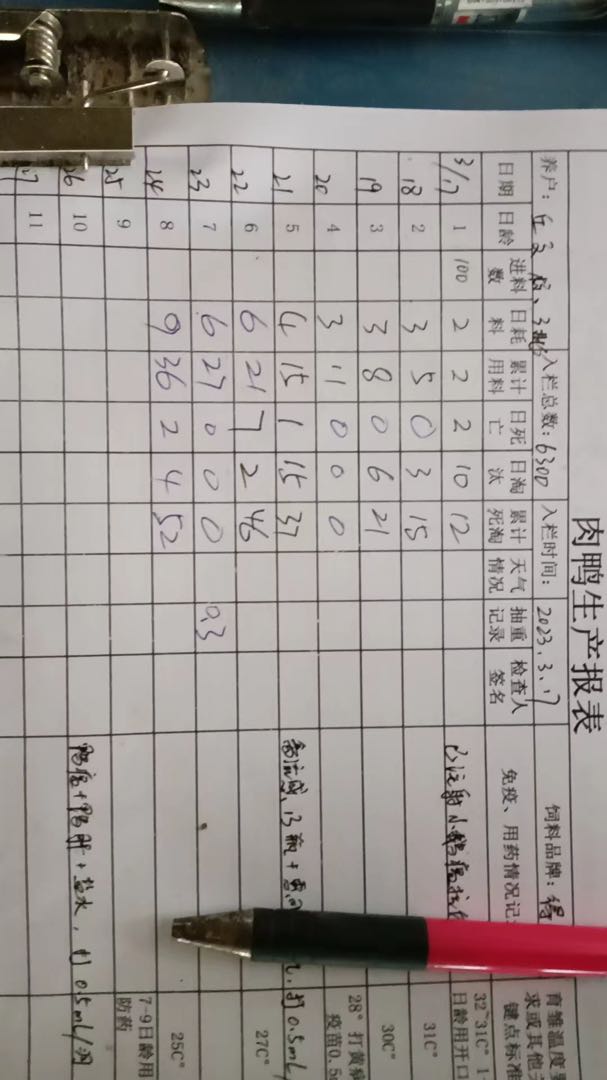 肉鸭生产报表
养户: 入栏总数: 6300 入栏时间: 2023.3.17 饲料品牌:
日期 日龄 进料数 日耗料 累计用料 日死亡 日淘汰 累计死淘 天气情况 抽重记录 检查人签名 免疫、用药情况记
3/17 1 100 2 2 2 10 12 已注射小鹅瘟抗 32~31C° 1 日龄用开口
18 2 3 5 0 3 15 31C°
19 3 3 8 0 6 21 30C°
20 4 3 11 0 0 0 28° 打黄病 疫苗0.5
21 5 4 15 1 15 37 禽流感, 13瓶+ 打0.5mL/
22 6 6 21 7 2 46 27C°
23 7 6 27 0 0 0 0.3
24 8 9 36 2 4 52 25C°
25 9 7-9日龄用 防药
26 10 鸭瘟+鸭肝+盐水, 打0.5mL/羽
11